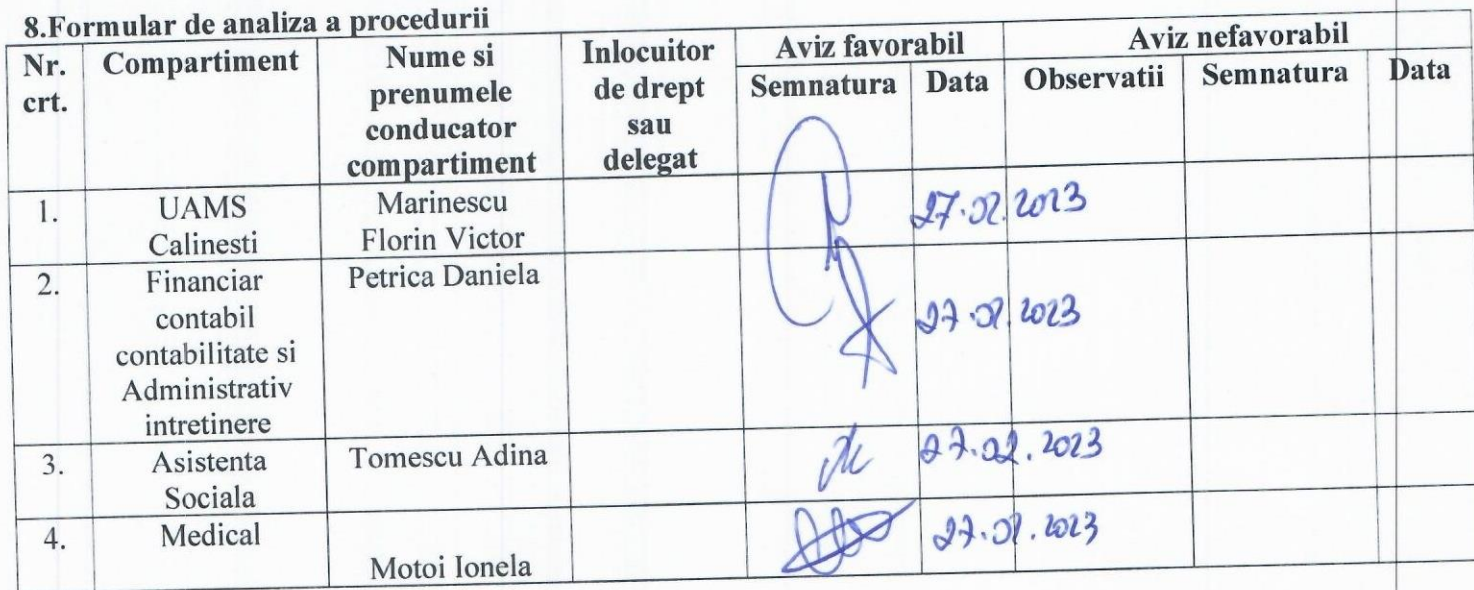 8.Formular de analiza a procedurii
Nr. crt. Compartiment Nume si prenumele conducator compartiment Inlocuitor de drept sau delegat Aviz favorabil Aviz nefavorabil
Semnatura Data Observatii Semnatura Data
1. UAMS Calinesti Marinescu Florin Victor 27.02.2023
2. Financiar contabil contabilitate si Administrativ intretinere Petrica Daniela 27.02.2023
3. Asistenta Sociala Tomescu Adina 27.02.2023
4. Medical Motoi Ionela 27.02.2023